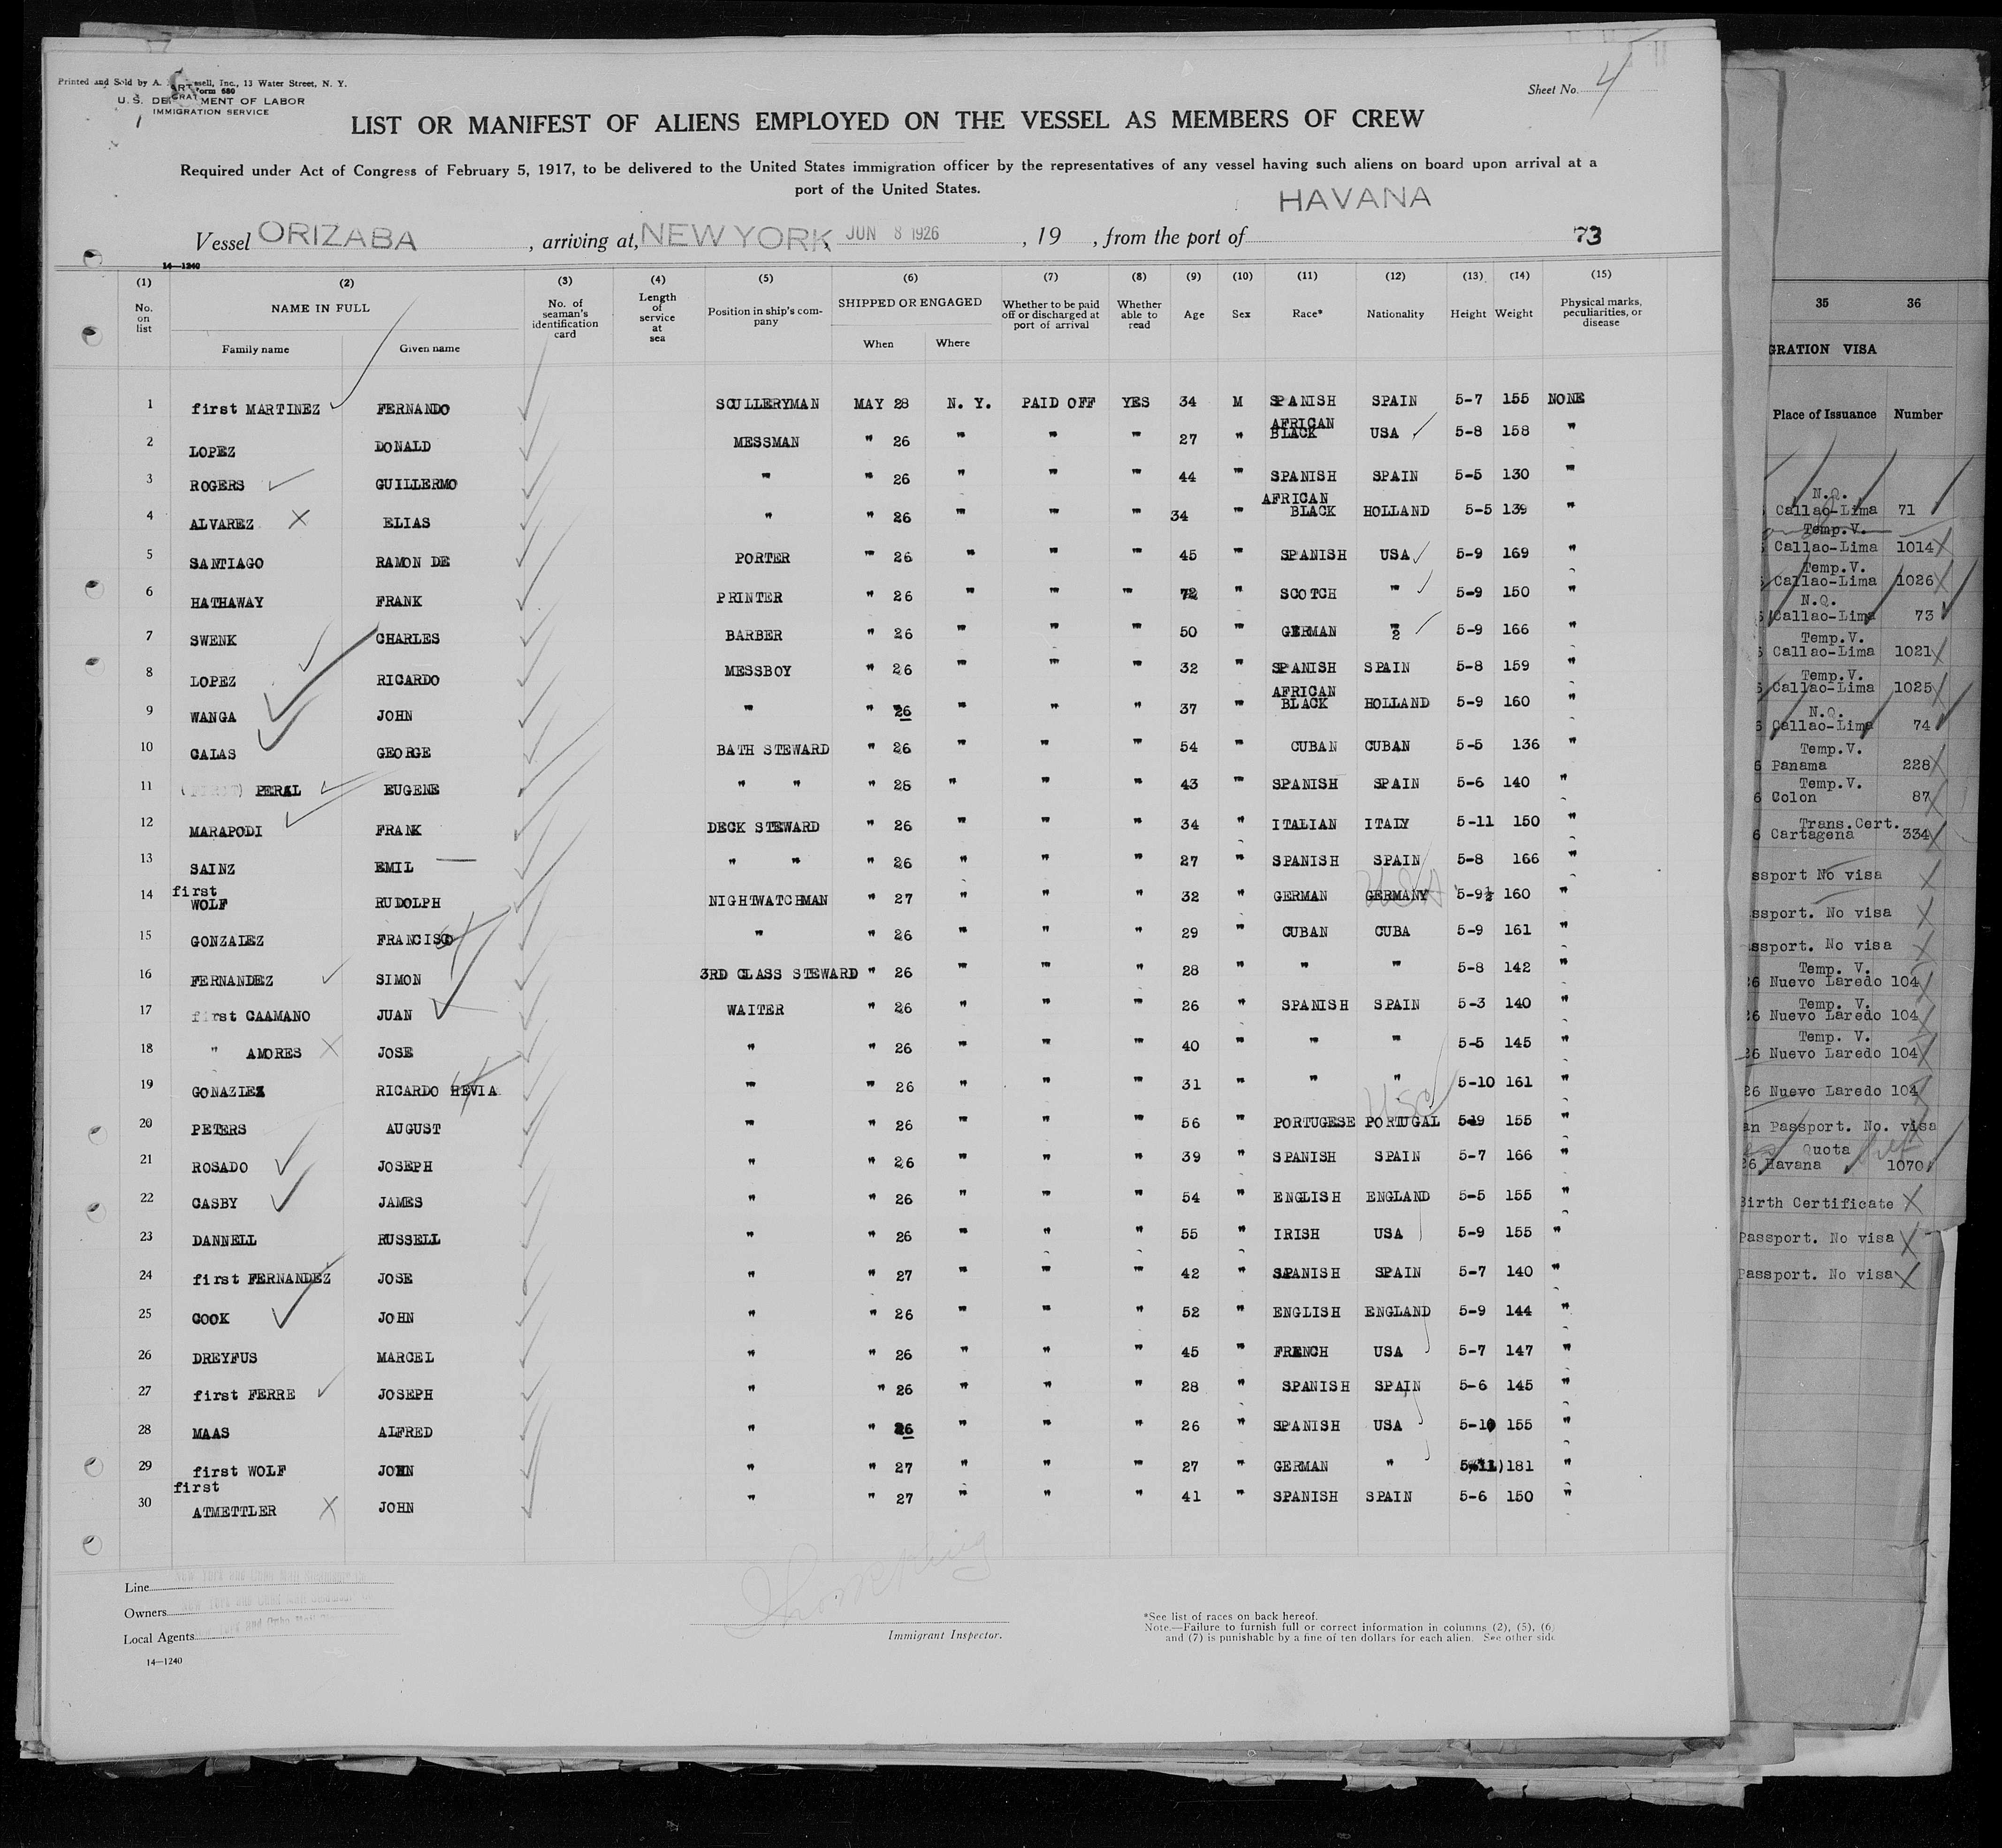 Printed and Sold by A. ssell, Inc., 13 Water Street, N. Y.
Form 680
U. S. DEPARTMENT OF LABOR
IMMIGRATION SERVICE
Sheet No. 4
LIST OR MANIFEST OF ALIENS EMPLOYED ON THE VESSEL AS MEMBERS OF CREW
Required under Act of Congress of February 5, 1917, to be delivered to the United States immigration officer by the representatives of any vessel having such aliens on board upon arrival at a
port of the United States.
HAVANA
Vessel ORIZABA, arriving at, NEW YORK, JUN 8 1926, 19 , from the port of 73
14—1240
(1) (2) (3) (4) (5) (6) (7) (8) (9) (10) (11) (12) (13) (14) (15)
No. on list NAME IN FULL Family name Given name No. of seaman's identification card Length of service at sea Position in ship's company SHIPPED OR ENGAGED When Where Whether to be paid off or discharged at port of arrival Whether able to read Age Sex Race* Nationality Height Weight Physical marks, peculiarities, or disease
1 first MARTINEZ FERNANDO SCULLERYMAN MAY 28 N. Y. PAID OFF YES 34 M SPANISH SPAIN 5-7 155 NONE
2 LOPEZ DONALD MESSMAN " 26 " " " 27 " AFRICAN BLACK USA 5-8 158 "
3 ROGERS GUILLERMO " " 26 " " " 44 " SPANISH SPAIN 5-5 130 "
4 ALVAREZ ELIAS " " 26 " " " 34 " AFRICAN BLACK HOLLAND 5-5 139 "
5 SANTIAGO RAMON DE PORTER " 26 " " " 45 " SPANISH USA 5-9 169 "
6 HATHAWAY FRANK PRINTER " 26 " " " 72 " SCOTCH " 5-9 150 "
7 SWENK CHARLES BARBER " 26 " " " 50 " GERMAN " 5-9 166 "
8 LOPEZ RICARDO MESSBOY " 26 " " " 32 " SPANISH SPAIN 5-8 159 "
9 WANGA JOHN " " 26 " " " 37 " AFRICAN BLACK HOLLAND 5-9 160 "
10 CALAS GEORGE BATH STEWARD " 26 " " " 54 " CUBAN CUBAN 5-5 136 "
11 (FIRST) PERAL EUGENE " " " 26 " " " 43 " SPANISH SPAIN 5-6 140 "
12 MARAPODI FRANK DECK STEWARD " 26 " " " 34 " ITALIAN ITALY 5-11 150 "
13 SAINZ EMIL " " " 26 " " " 27 " SPANISH SPAIN 5-8 166 "
14 first WOLF RUDOLPH NIGHTWATCHMAN " 27 " " " 32 " GERMAN GERMANY USA 5-9½ 160 "
15 GONZALEZ FRANCISCO " " 26 " " " 29 " CUBAN CUBA 5-9 161 "
16 FERNANDEZ SIMON 3RD CLASS STEWARD " 26 " " " 28 " " " 5-8 142 "
17 first CAAMANO JUAN WAITER " 26 " " " 26 " SPANISH SPAIN 5-3 140 "
18 " AMORES JOSE " " 26 " " " 40 " " " 5-5 145 "
19 GONAZLEZ RICARDO HEVIA " " 26 " " " 31 " " " 5-10 161 "
20 PETERS AUGUST " " 26 " " " 56 " PORTUGESE PORTUGAL USC 5-9 155 "
21 ROSADO JOSEPH " " 26 " " " 39 " SPANISH SPAIN 5-7 166 "
22 CASBY JAMES " " 26 " " " 54 " ENGLISH ENGLAND 5-5 155 "
23 DANNELL RUSSELL " " 26 " " " 55 " IRISH USA 5-9 155 "
24 first FERNANDEZ JOSE " " 27 " " " 42 " SPANISH SPAIN 5-7 140 "
25 COOK JOHN " " 26 " " " 52 " ENGLISH ENGLAND 5-9 144 "
26 DREYFUS MARCEL " " 26 " " " 45 " FRENCH USA 5-7 147 "
27 first FERRE JOSEPH " " 26 " " " 28 " SPANISH SPAIN 5-6 145 "
28 MAAS ALFRED " " 26 " " " 26 " SPANISH USA 5-10 155 "
29 first WOLF JOHN " " 27 " " " 27 " GERMAN " 5-11 181 "
30 first ATMETTLER JOHN " " 27 " " " 41 " SPANISH SPAIN 5-6 150 "
Line New York and Cuba Mail Steamship
Owners New York and Cuba Mail Steamship
Local Agents New York and Cuba Mail
Immigrant Inspector.
*See list of races on back hereof.
Note.—Failure to furnish full or correct information in columns (2), (5), (6)
and (7) is punishable by a fine of ten dollars for each alien. See other side
14—1240
35 36
GRATION VISA
Place of Issuance Number
N.Q.
Callao-Lima 71
Temp.V.
Callao-Lima 1014
Temp.V.
Callao-Lima 1026
N.Q.
Callao-Lima 73
Temp.V.
Callao-Lima 1021
Temp.V.
Callao-Lima 1025
N.Q.
Callao-Lima 74
Temp.V.
6 Panama 228
Temp.V.
6 Colon 87
Trans.Cert.
6 Cartagena 334
ssport No visa
ssport. No visa
assport. No visa
Temp. V.
26 Nuevo Laredo 104
Temp. V.
26 Nuevo Laredo 104
Temp. V.
26 Nuevo Laredo 104
26 Nuevo Laredo 104
an Passport. No. visa
Quota
26 Havana 1070
Birth Certificate
Passport. No visa
Passport. No visa